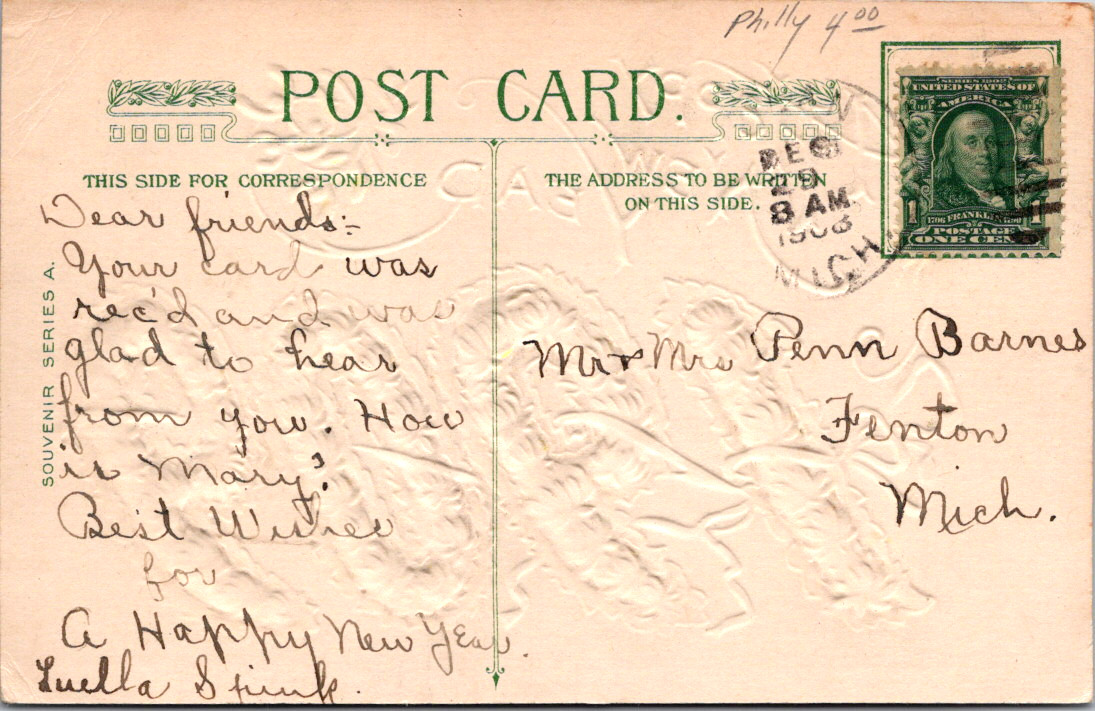 Philly 4 00
POST CARD.
THIS SIDE FOR CORRESPONDENCE
THE ADDRESS TO BE WRITTEN
ON THIS SIDE.
SOUVENIR SERIES A.
Dear friends:-
Your card was
rec'd and was
glad to hear
from you. How
is Mary?
Best Wishes
for
A Happy New Year.
Luella Spunk.
DEC
29
8 AM
1908
MICH.
SERIES 1902
UNITED STATES OF
AMERICA
1706 FRANKLIN 1790
1 1
POSTAGE
ONE CENT
Mr & Mrs Penn Barnes
Fenton
Mich.